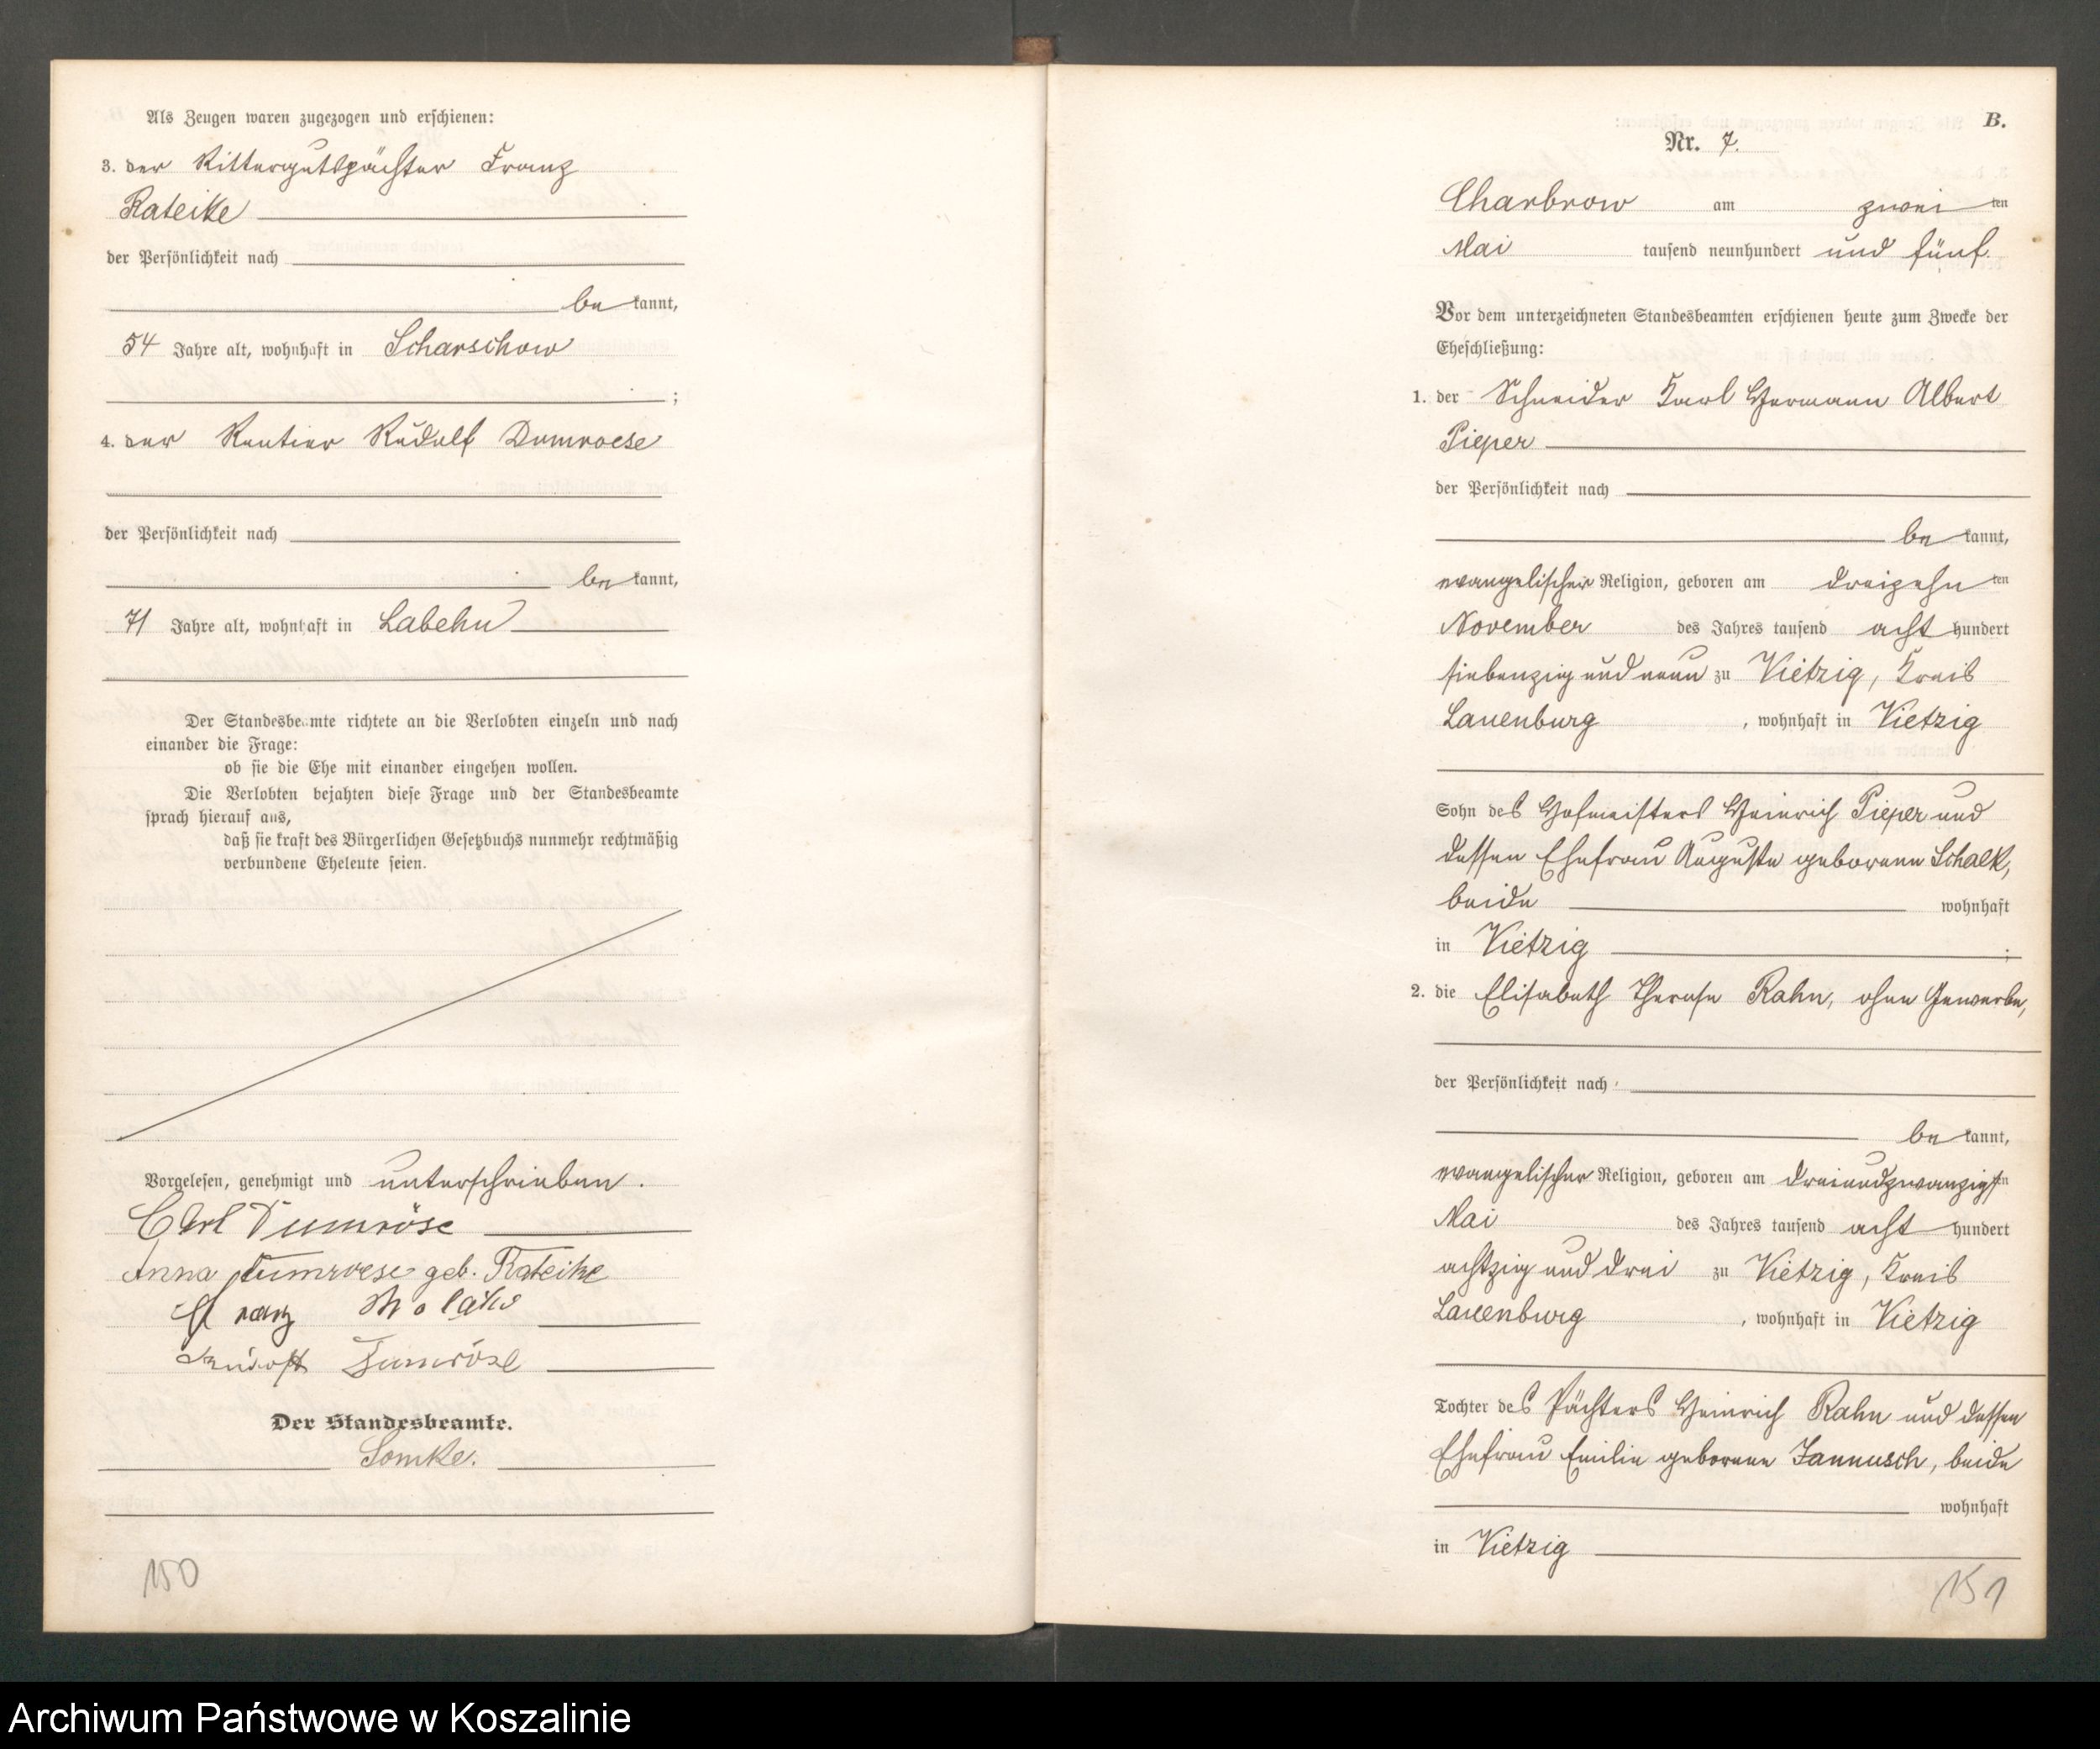 Als Zeugen waren zugezogen und erschienen:
3. der Rittergutspächter Franz
Rateike
der Persönlichkeit nach
be kannt,
54 Jahre alt, wohnhaft in Scharschow
;
4. der Rentier Rudolf Dumroese
der Persönlichkeit nach
be kannt,
71 Jahre alt, wohnhaft in Labehn
Der Standesbeamte richtete an die Verlobten einzeln und nach
einander die Frage:
ob sie die Ehe mit einander eingehen wollen.
Die Verlobten bejahten diese Frage und der Standesbeamte
sprach hierauf aus,
daß sie kraft des Bürgerlichen Gesetzbuchs nunmehr rechtmäßig
verbundene Eheleute seien.
Vorgelesen, genehmigt und unterschrieben.
Carl Dumröse
Anna Dumroese geb. Rateike
Franz
Rudolf Dumröse
Der Standesbeamte.
Lomke.
150
B.
Nr. 7.
Charbrow am zwei ten
Mai tausend neunhundert und fünf.
Vor dem unterzeichneten Standesbeamten erschienen heute zum Zwecke der
Eheschließung:
1. der Schneider Karl Hermann Albert
Pieper
der Persönlichkeit nach
be kannt,
evangelischer Religion, geboren am dreizehn ten
November des Jahres tausend acht hundert
siebenzig und neun zu Vietzig, Kreis
Lauenburg, wohnhaft in Vietzig
Sohn des Hofmeisters Heinrich Pieper und
dessen Ehefrau Auguste geborene Schalk,
beide wohnhaft
in Vietzig ;
2. die Elisabeth Therese Rahn, ohne Gewerbe,
der Persönlichkeit nach
be kannt,
evangelischer Religion, geboren am dreiundzwanzigsten
Mai des Jahres tausend acht hundert
achtzig und drei zu Vietzig, Kreis
Lauenburg, wohnhaft in Vietzig
Tochter des Pächters Heinrich Rahn und dessen
Ehefrau Emilie geborene Jannusch, beide
wohnhaft
in Vietzig
151
Archiwum Państwowe w Koszalinie